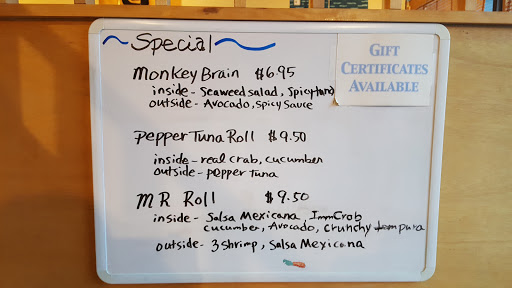 ~Special~
GIFT
CERTIFICATES
AVAILABLE
Monkey Brain $6.95
inside - Seaweed salad, Spicy tuna
outside - Avocado, Spicy Sauce
Pepper Tuna Roll $9.50
inside - real crab, cucumber
outside - pepper tuna
MR Roll $9.50
inside - Salsa Mexicana, Imm Crab
cucumber, Avocado, Crunchy tempura
outside - 3 shrimp, Salsa Mexicana